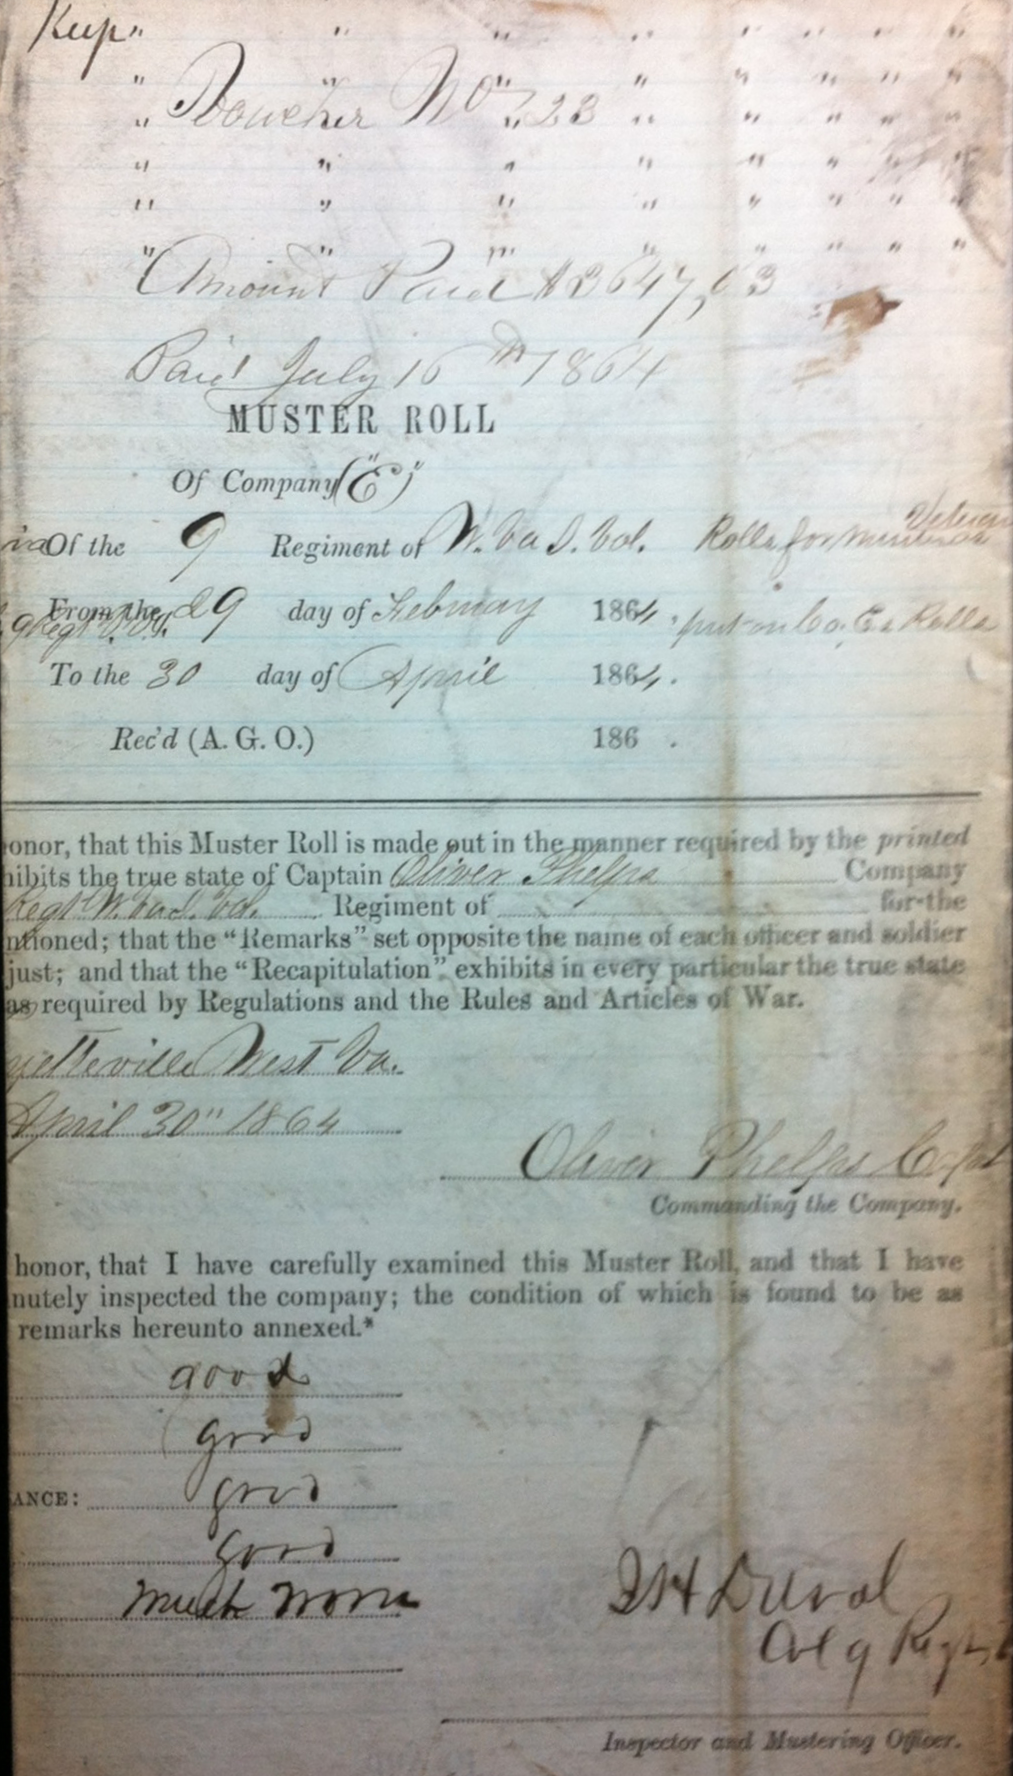 Keep " " " " " " "
" " " " " " "
Voucher No 223
" " " " " " "
" " " " " " "
" " " " " " "
" " " " " " "
Amount Paid $3647,63
Paid July 16th 1864
MUSTER ROLL
Of Company ("E")
Of the 9 Regiment of W. Va I. Vol. Rolls for
Veteran
From the 29 day of February 1864. put on Co. E. Rolls
To the 30 day of April 1864.
Rec'd (A. G. O.) 186 .
onor, that this Muster Roll is made out in the manner required by the printed
hibits the true state of Captain Oliver Phelps Company
Regt W. Va I. Vol. Regiment of for the
ntioned; that the "Remarks" set opposite the name of each officer and soldier
just; and that the "Recapitulation" exhibits in every particular the true state
as required by Regulations and the Rules and Articles of War.
yetteville West Va.
April 30" 1864
Oliver Phelps Capt
Commanding the Company.
honor, that I have carefully examined this Muster Roll, and that I have
nutely inspected the company; the condition of which is found to be as
remarks hereunto annexed.*
good
good
ANCE: good
good
Much worn
I H Duval
Col 9 Regt
Inspector and Mustering Officer.